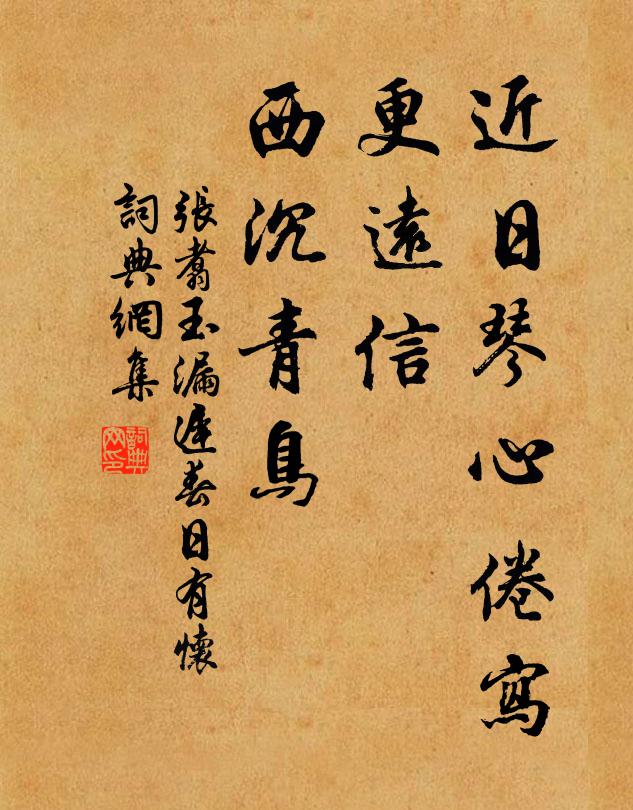 近日琴心倦寫
更遠信
西沉青鳥
張翥玉漏遲春日有懷
詞典網集
詞典网印